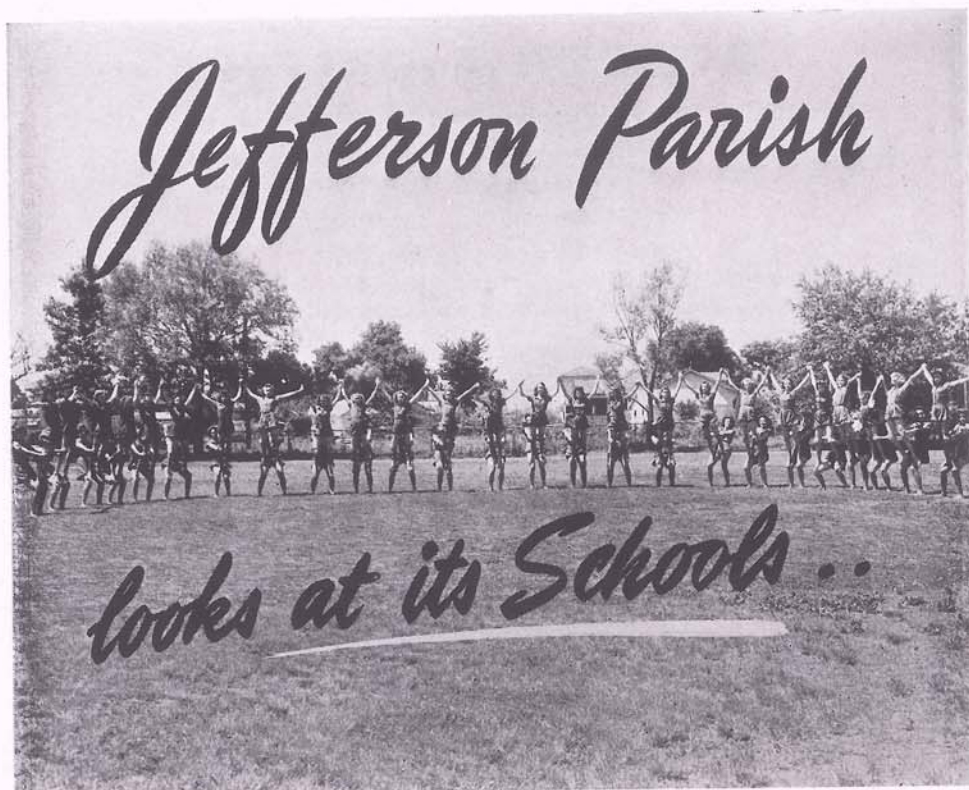 Jefferson Parish
looks at its Schools..